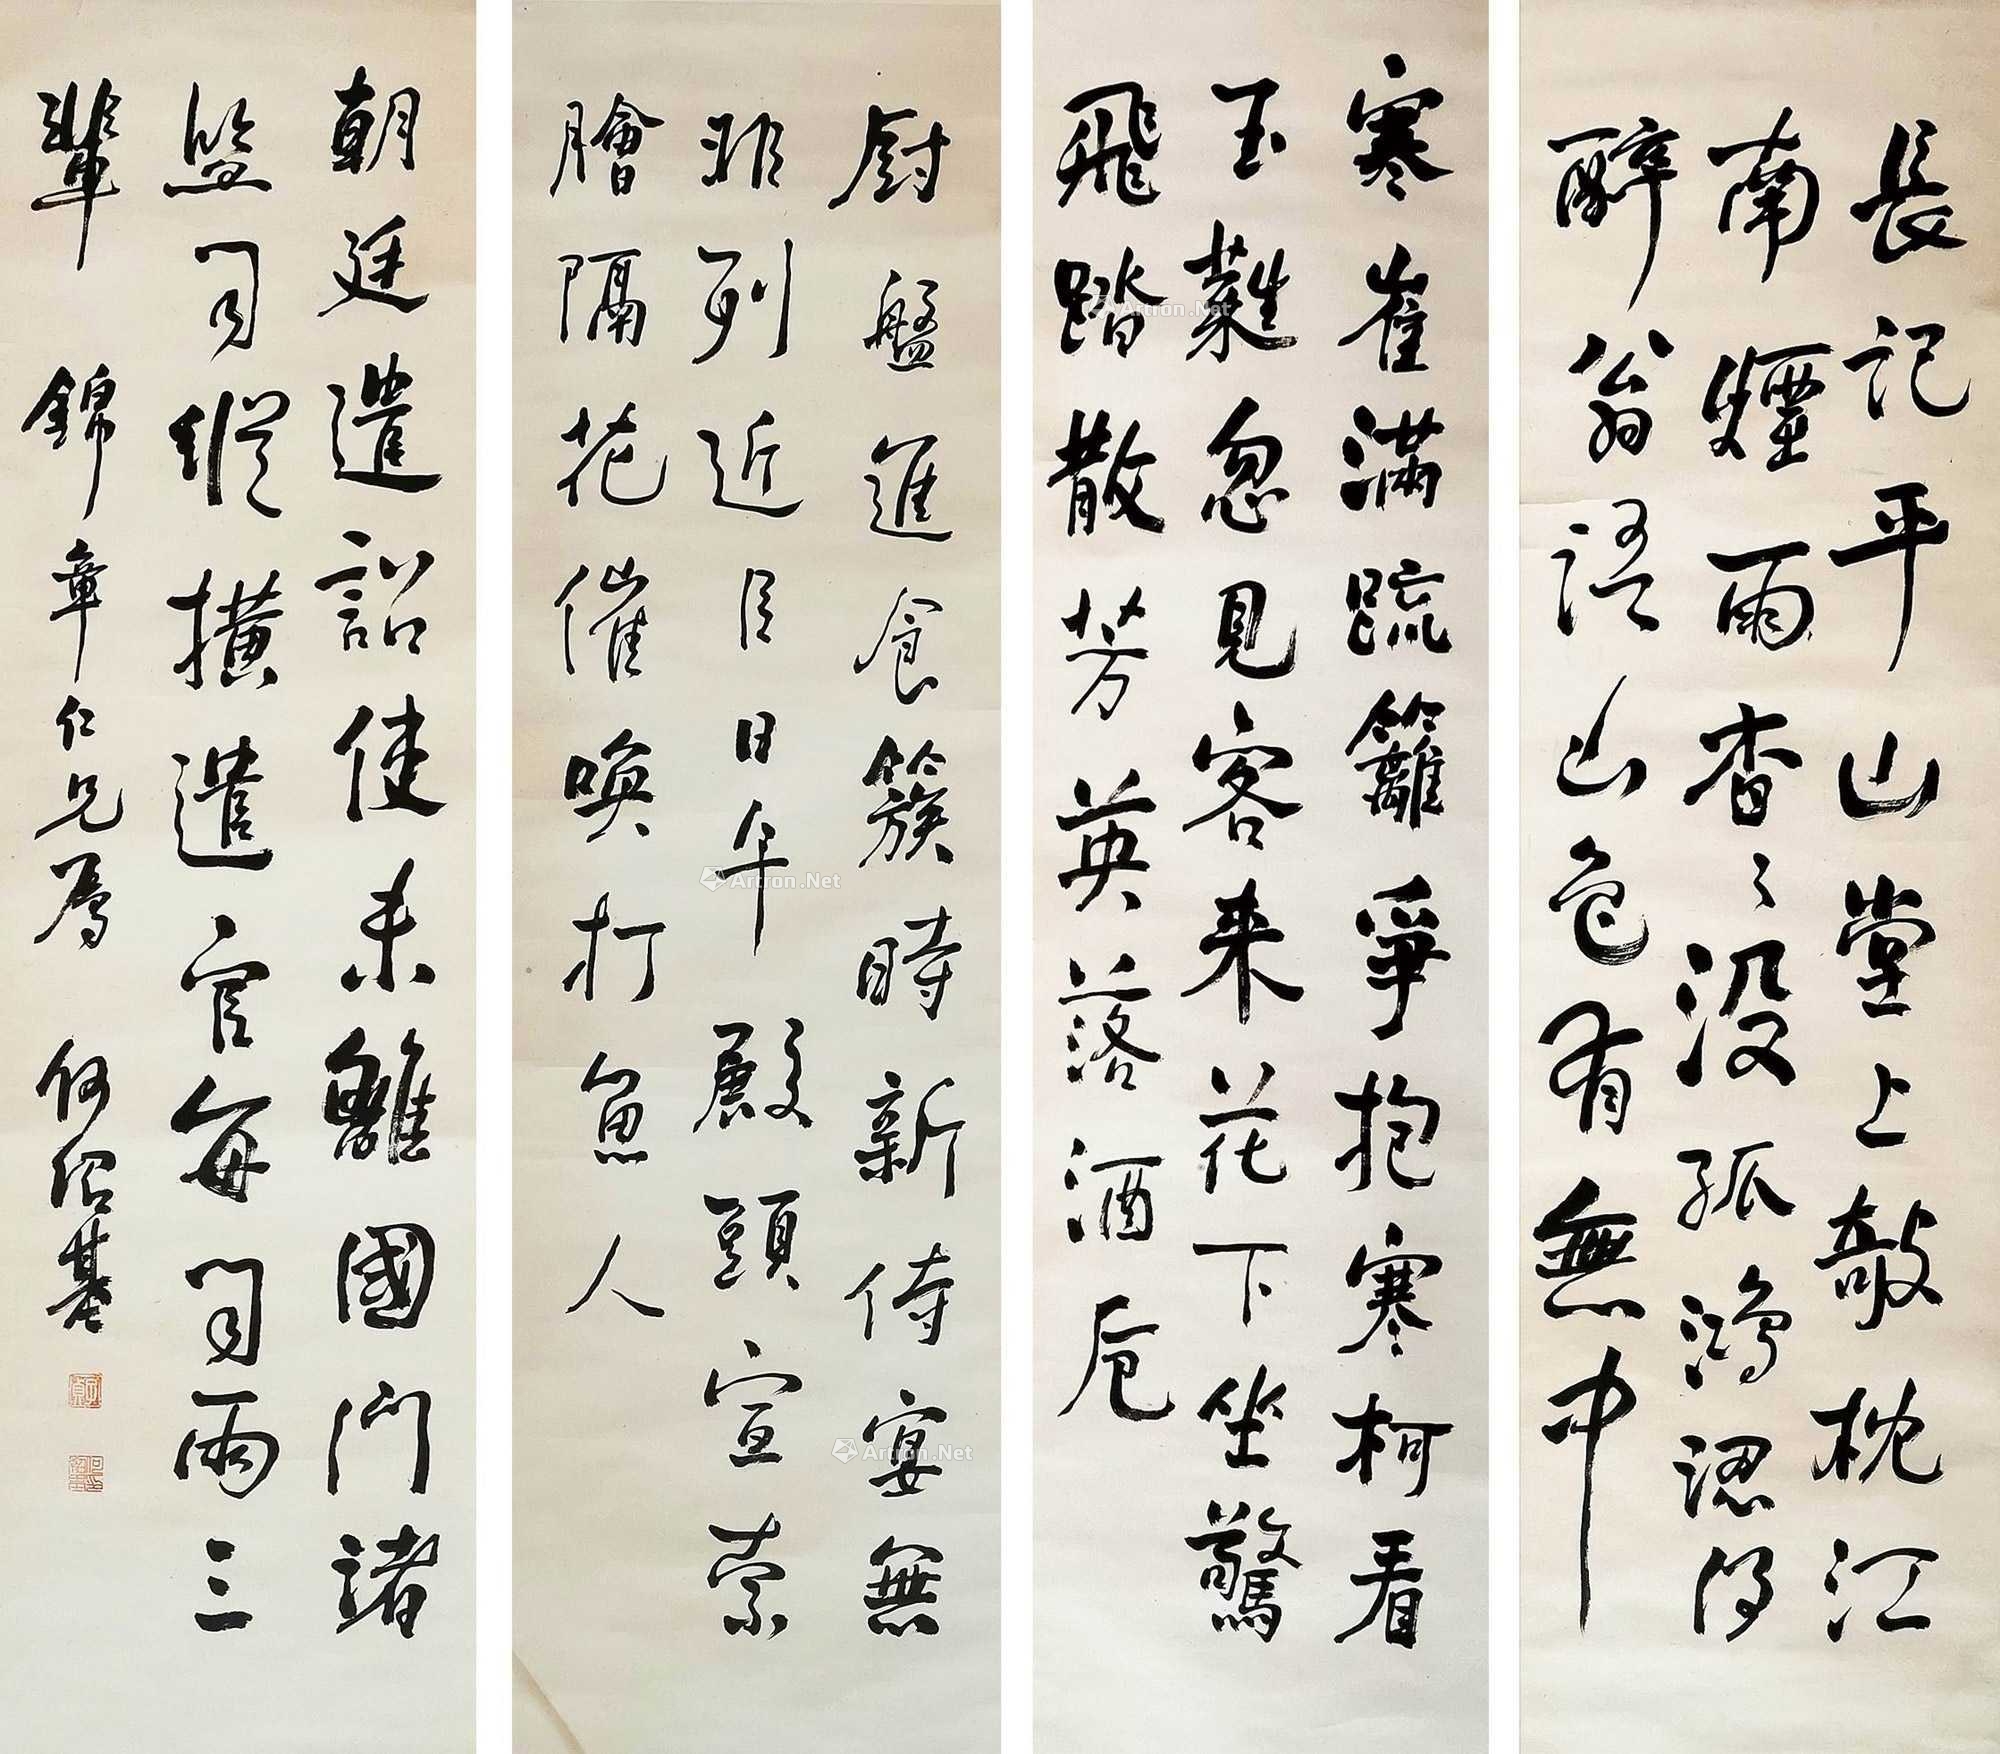 長記平山堂上敧枕江
南煙雨杳〻没孤鴻認得
醉翁語山色有無中
寒雀滿疏籬爭抱寒柯看
玉蕤忽見客来花下坐驚
飛踏散芳英落酒卮
廚盤進食簇時新侍宴無
非列近臣日午殿頭宣索
膾隔花催喚打魚人
朝廷遣詔使未離國門諸
監司縱橫遣官每司兩三
輩 錦章仁兄屬 何紹基
Artron.Net
Artron.Net
Artron.Net
Artron.Net